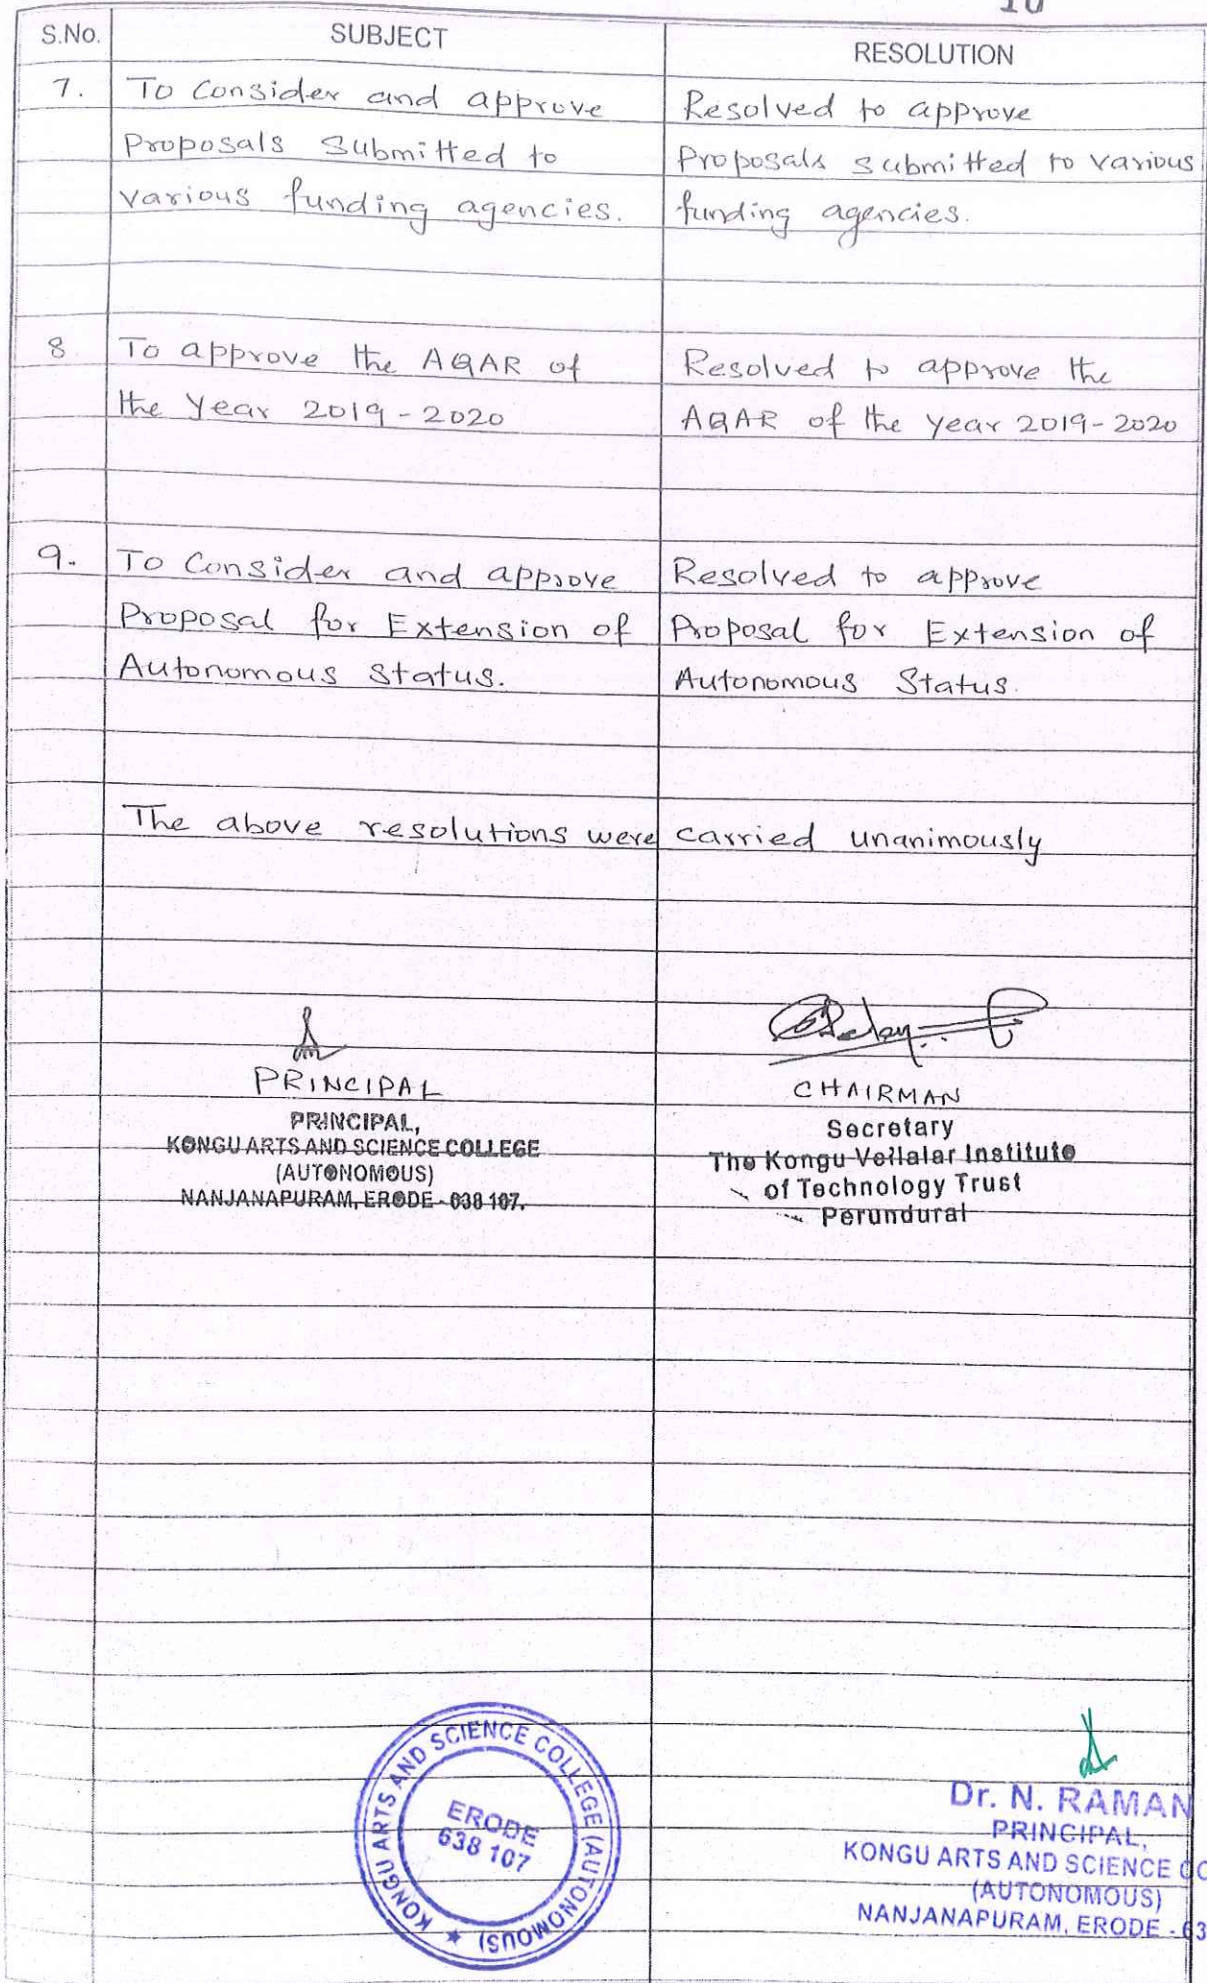 10
S.No. SUBJECT RESOLUTION
7. To Consider and approve
Proposals Submitted to
various funding agencies.
Resolved to approve
Proposals submitted to various
funding agencies.
8 To approve the AQAR of
the Year 2019-2020
Resolved to approve the
AQAR of the year 2019-2020
9. To Consider and approve
Proposal for Extension of
Autonomous Status.
Resolved to approve
Proposal for Extension of
Autonomous Status.
The above resolutions were carried unanimously
PRINCIPAL
PRINCIPAL,
KONGU ARTS AND SCIENCE COLLEGE
(AUTONOMOUS)
NANJANAPURAM, ERODE - 638 107.
CHAIRMAN
Secretary
The Kongu Vellalar Institute
of Technology Trust
Perundurai
KONGU ARTS AND SCIENCE COLLEGE (AUTONOMOUS)
ERODE
638 107
Dr. N. RAMAN
PRINCIPAL,
KONGU ARTS AND SCIENCE CO
(AUTONOMOUS)
NANJANAPURAM, ERODE - 63